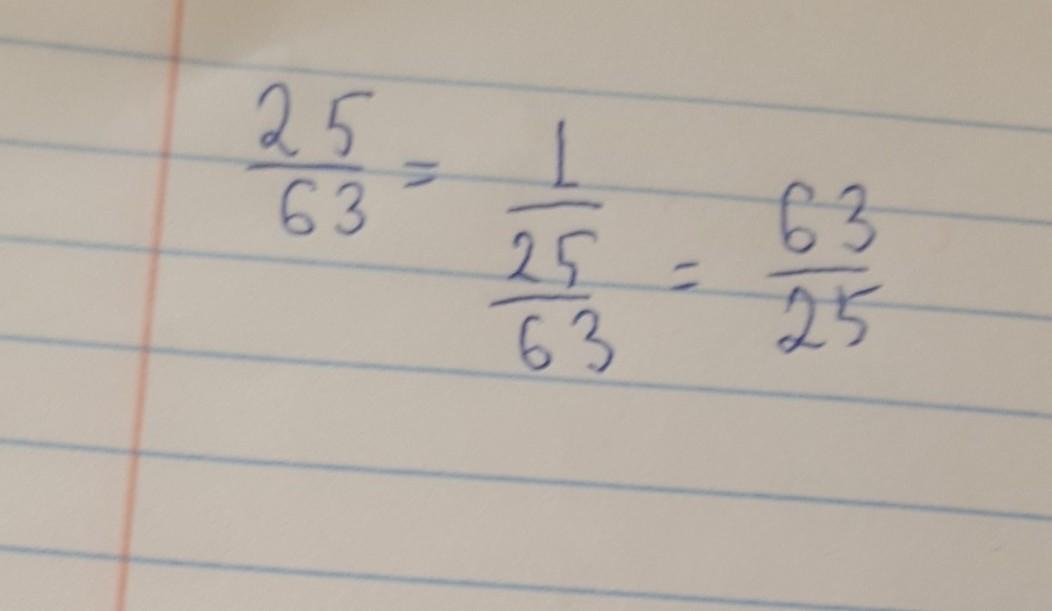 25/63 = 1/(25/63) = 63/25